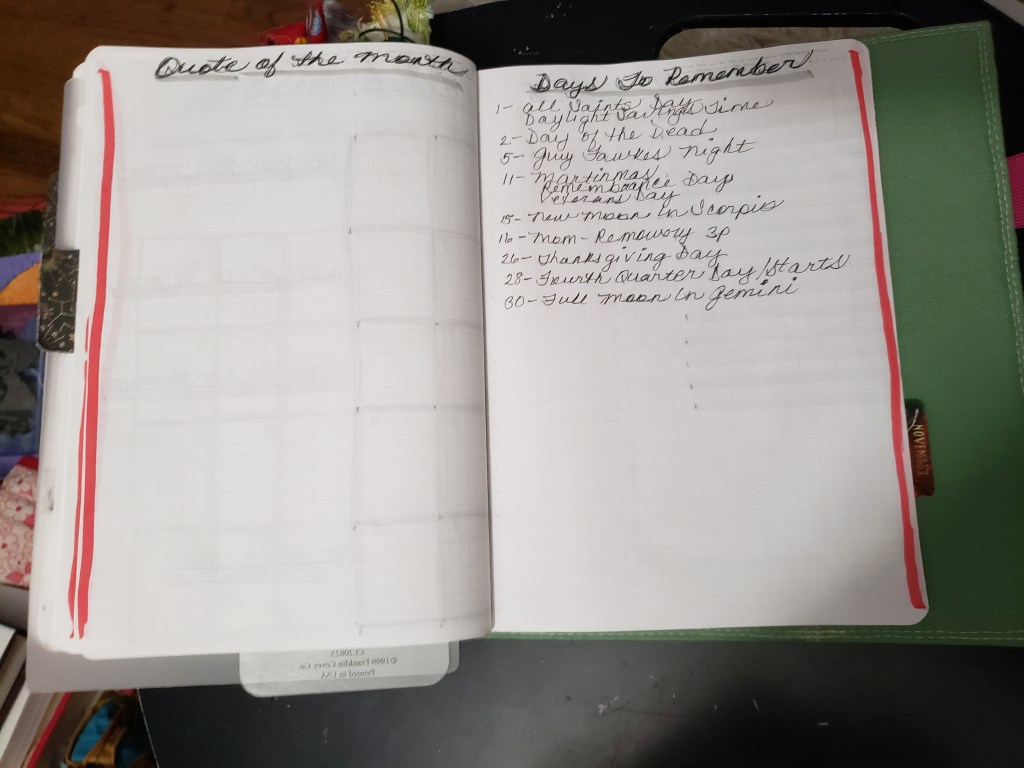 Quote of the Month
Days To Remember
1- All Saints Day
Daylight Savings Time
2- Day of the Dead
5- Guy Fawkes Night
11- Martinmas
Remembrance Day
Veterans Day
15- New Moon In Scorpio
16- Mom- 3p
26- Thanksgiving Day
28- Fourth Quarter Day/Starts
30- Full Moon In Gemini
NOVEMBER
CL20823
©1999 Franklin Covey Co.
Printed in USA